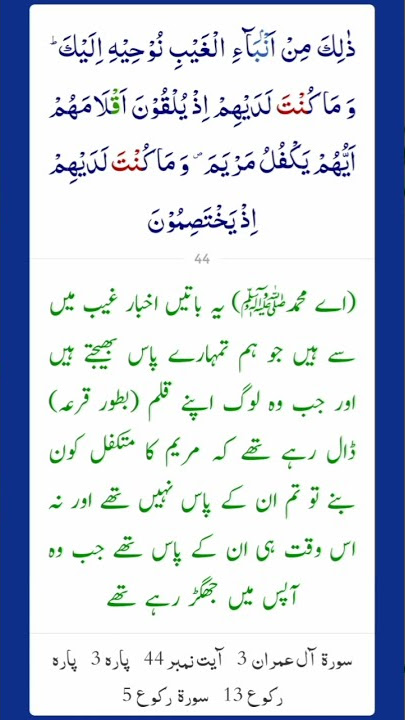 ذٰلِكَ مِنْ اَنْۢبَآءِ الْغَيْبِ نُوْحِيْهِ اِلَيْكَ ؕ
وَ مَا كُنْتَ لَدَيْهِمْ اِذْ يُلْقُوْنَ اَقْلَامَهُمْ
اَيُّهُمْ يَكْفُلُ مَرْيَمَ ۪ وَ مَا كُنْتَ لَدَيْهِمْ
اِذْ يَخْتَصِمُوْنَ
44
(اے محمدﷺ) یہ باتیں اخبار غیب میں
سے ہیں جو ہم تمہارے پاس بھیجتے ہیں
اور جب وہ لوگ اپنے قلم (بطور قرعہ)
ڈال رہے تھے کہ مریم کا متکفل کون
بنے تو تم ان کے پاس نہیں تھے اور نہ
اس وقت ہی ان کے پاس تھے جب وہ
آپس میں جھگڑ رہے تھے
سورة آل عمران 3 آیت نمبر 44 پارہ 3 پارہ
رکوع 13 سورة رکوع 5